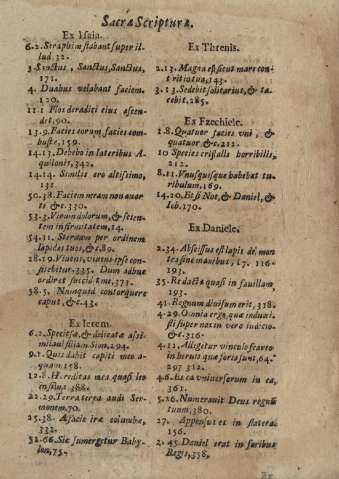 Sacræ Scripturæ.
Ex Isaia.
6.2. Seraphim stabant super il-
lud. 32.
3 Sanctus, Sanctus, Sanctus,
171.
4. Duabus velabant faciem.
120.
11.1 Flos de radici eius ascen-
det. 90.
13.9. Facies eorum facies com-
bustæ, 159.
14.13. Debebo in lateribus A-
quilonis, 342.
14.14. Similis ero altissimo,
131
50.38. Faciem meam non auer-
ti &c. 330.
53.3. Virum dolorum, & scien-
tem infirmitatem, 14.
54.11. Sternam per ordinem
lapides tuos, & c. 89.
28.19. Viuens, viuens ipse con-
fitebitur. 335. Dum adhuc
ordirer succidit me, 373.
58.5. Numquid contorquere
caput, &c. 43.
Ex Ierem.
6.2. Speciosæ, & delicatæ assi-
milaui filiam Sion, 294.
9.1. Quis dabit capiti meo a-
quam 158.
12.8. Hæreditas mea quasi leo
in silua, 388.
22.29. Terra terra audi Ser-
monem, 70.
25.38. Facie iræ columbæ,
332.
Sic sumergetur Baby-
lon, 75.
Ex Threnis.
2.13. Magna est sicut mare con-
tritio tua, 143.
3.13. Sedebit solitarius, & ta-
cebit. 285.
Ex Ezechiele.
1.8. Quatuor facies vni, &
quatuor &c. 212.
10 Species cristalli horribilis,
212.
8.11. Vnusquisque habebat tu-
ribulum, 169.
14.20. Et si Noe, & Daniel, &
Iob. 170.
Ex Daniele.
2.34. Abscissus est lapis de mon
te sine manibus, 17. 116-
193.
35. Redacta quasi in fauillam,
193.
41. Regnum diuisum erit, 238.
4.29. Omnia ergo, quæ induxi-
sti super nos in vero iudicio
&c. 316.
4.12. Alligetur vinculo ferreo
in herbis quæ foris sunt, 64.
297 312.
4.6. Esca vniuersorum in ea,
361.
5.26. Numerauit Deus regnũ
tuum, 380.
27. Appensus es in statera
156.
2.45. Daniel erat in foribus
Regis, 358.
Ex